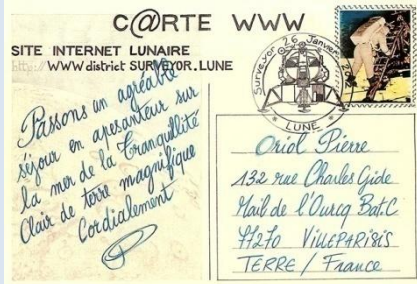 C@RTE WWW
SITE INTERNET LUNAIRE
http://WWW district SURVEYOR.LUNE
Surveyor 26 Janvier
LUNE
Passons un agréable
séjour en apesanteur sur
la mer de la tranquillité
Clair de terre magnifique
Cordialement
Oriol Pierre
132 rue Charles Gide
Mail de l'Ourcq Bat.C
77270 VILLEPARISIS
TERRE / France